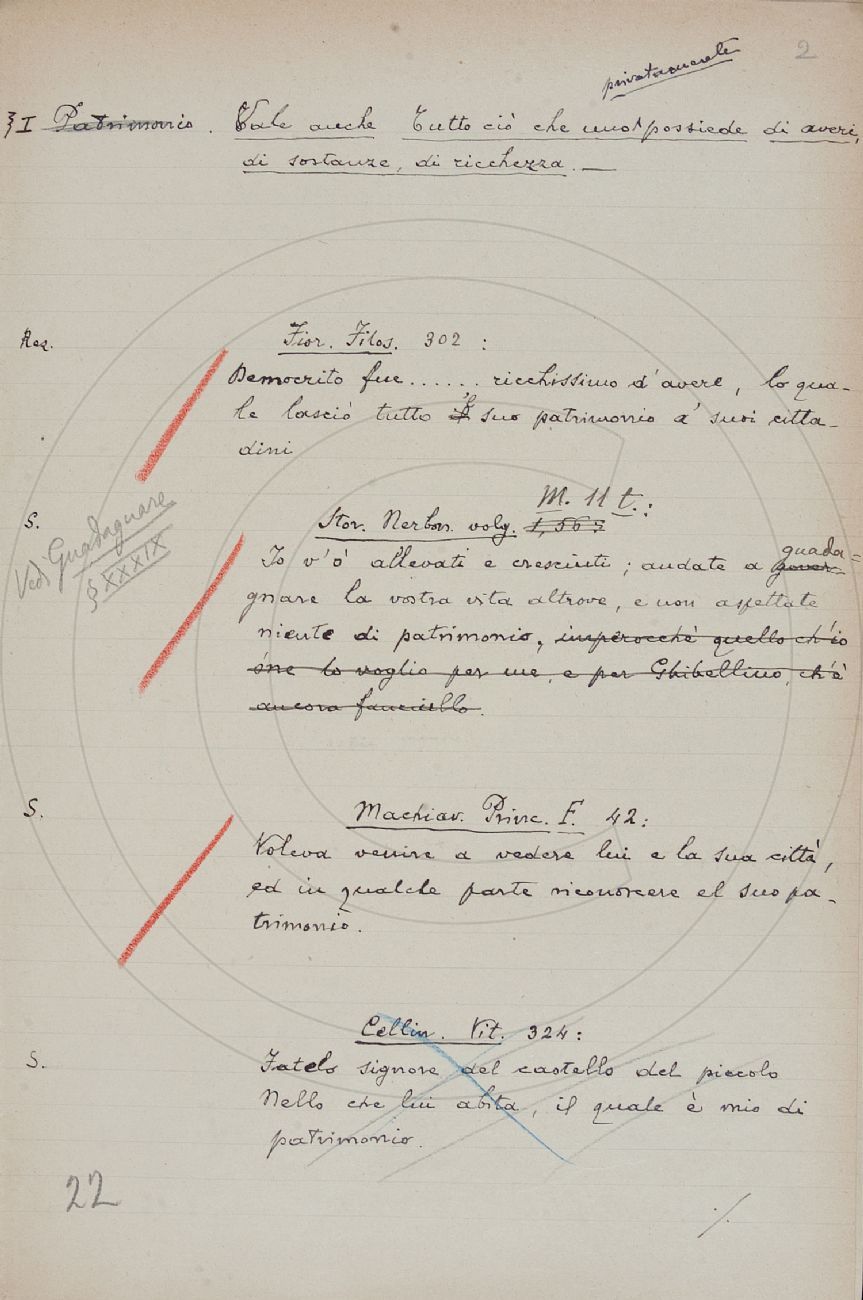 2
privatamente
§ I Patrimonio. Vale anche Tutto ciò che uno possiede di averi,
di sostanze, di ricchezza. —
Fior. Filos. 302 :
Democrito fue...... ricchissimo d'avere, lo qua-
le lasciò tutto il suo patrimonio a' suoi citta-
dini
M. 11 t.:
S. Stor. Nerbon. volg. 1, 563
Vedi Guadagnare
§ XXXIX
Io v'ò allevati e cresciuti; andate a guada=
gnare la vostra vita altrove, e non aspettate
niente di patrimonio, imperocchè quello ch'io
ò me lo voglio per me, e per Ghibellino, ch'è
ancora fanciullo.
S. Machiav. Princ. F. 42:
Voleva venire a vedere lui e la sua città,
ed in qualche parte riconoscere el suo pa-
trimonio.
Cellin. Vit. 324:
S. Fatelo signore del castello del piccolo
Nello che lui abita, il quale è mio di
patrimonio.
22
./.